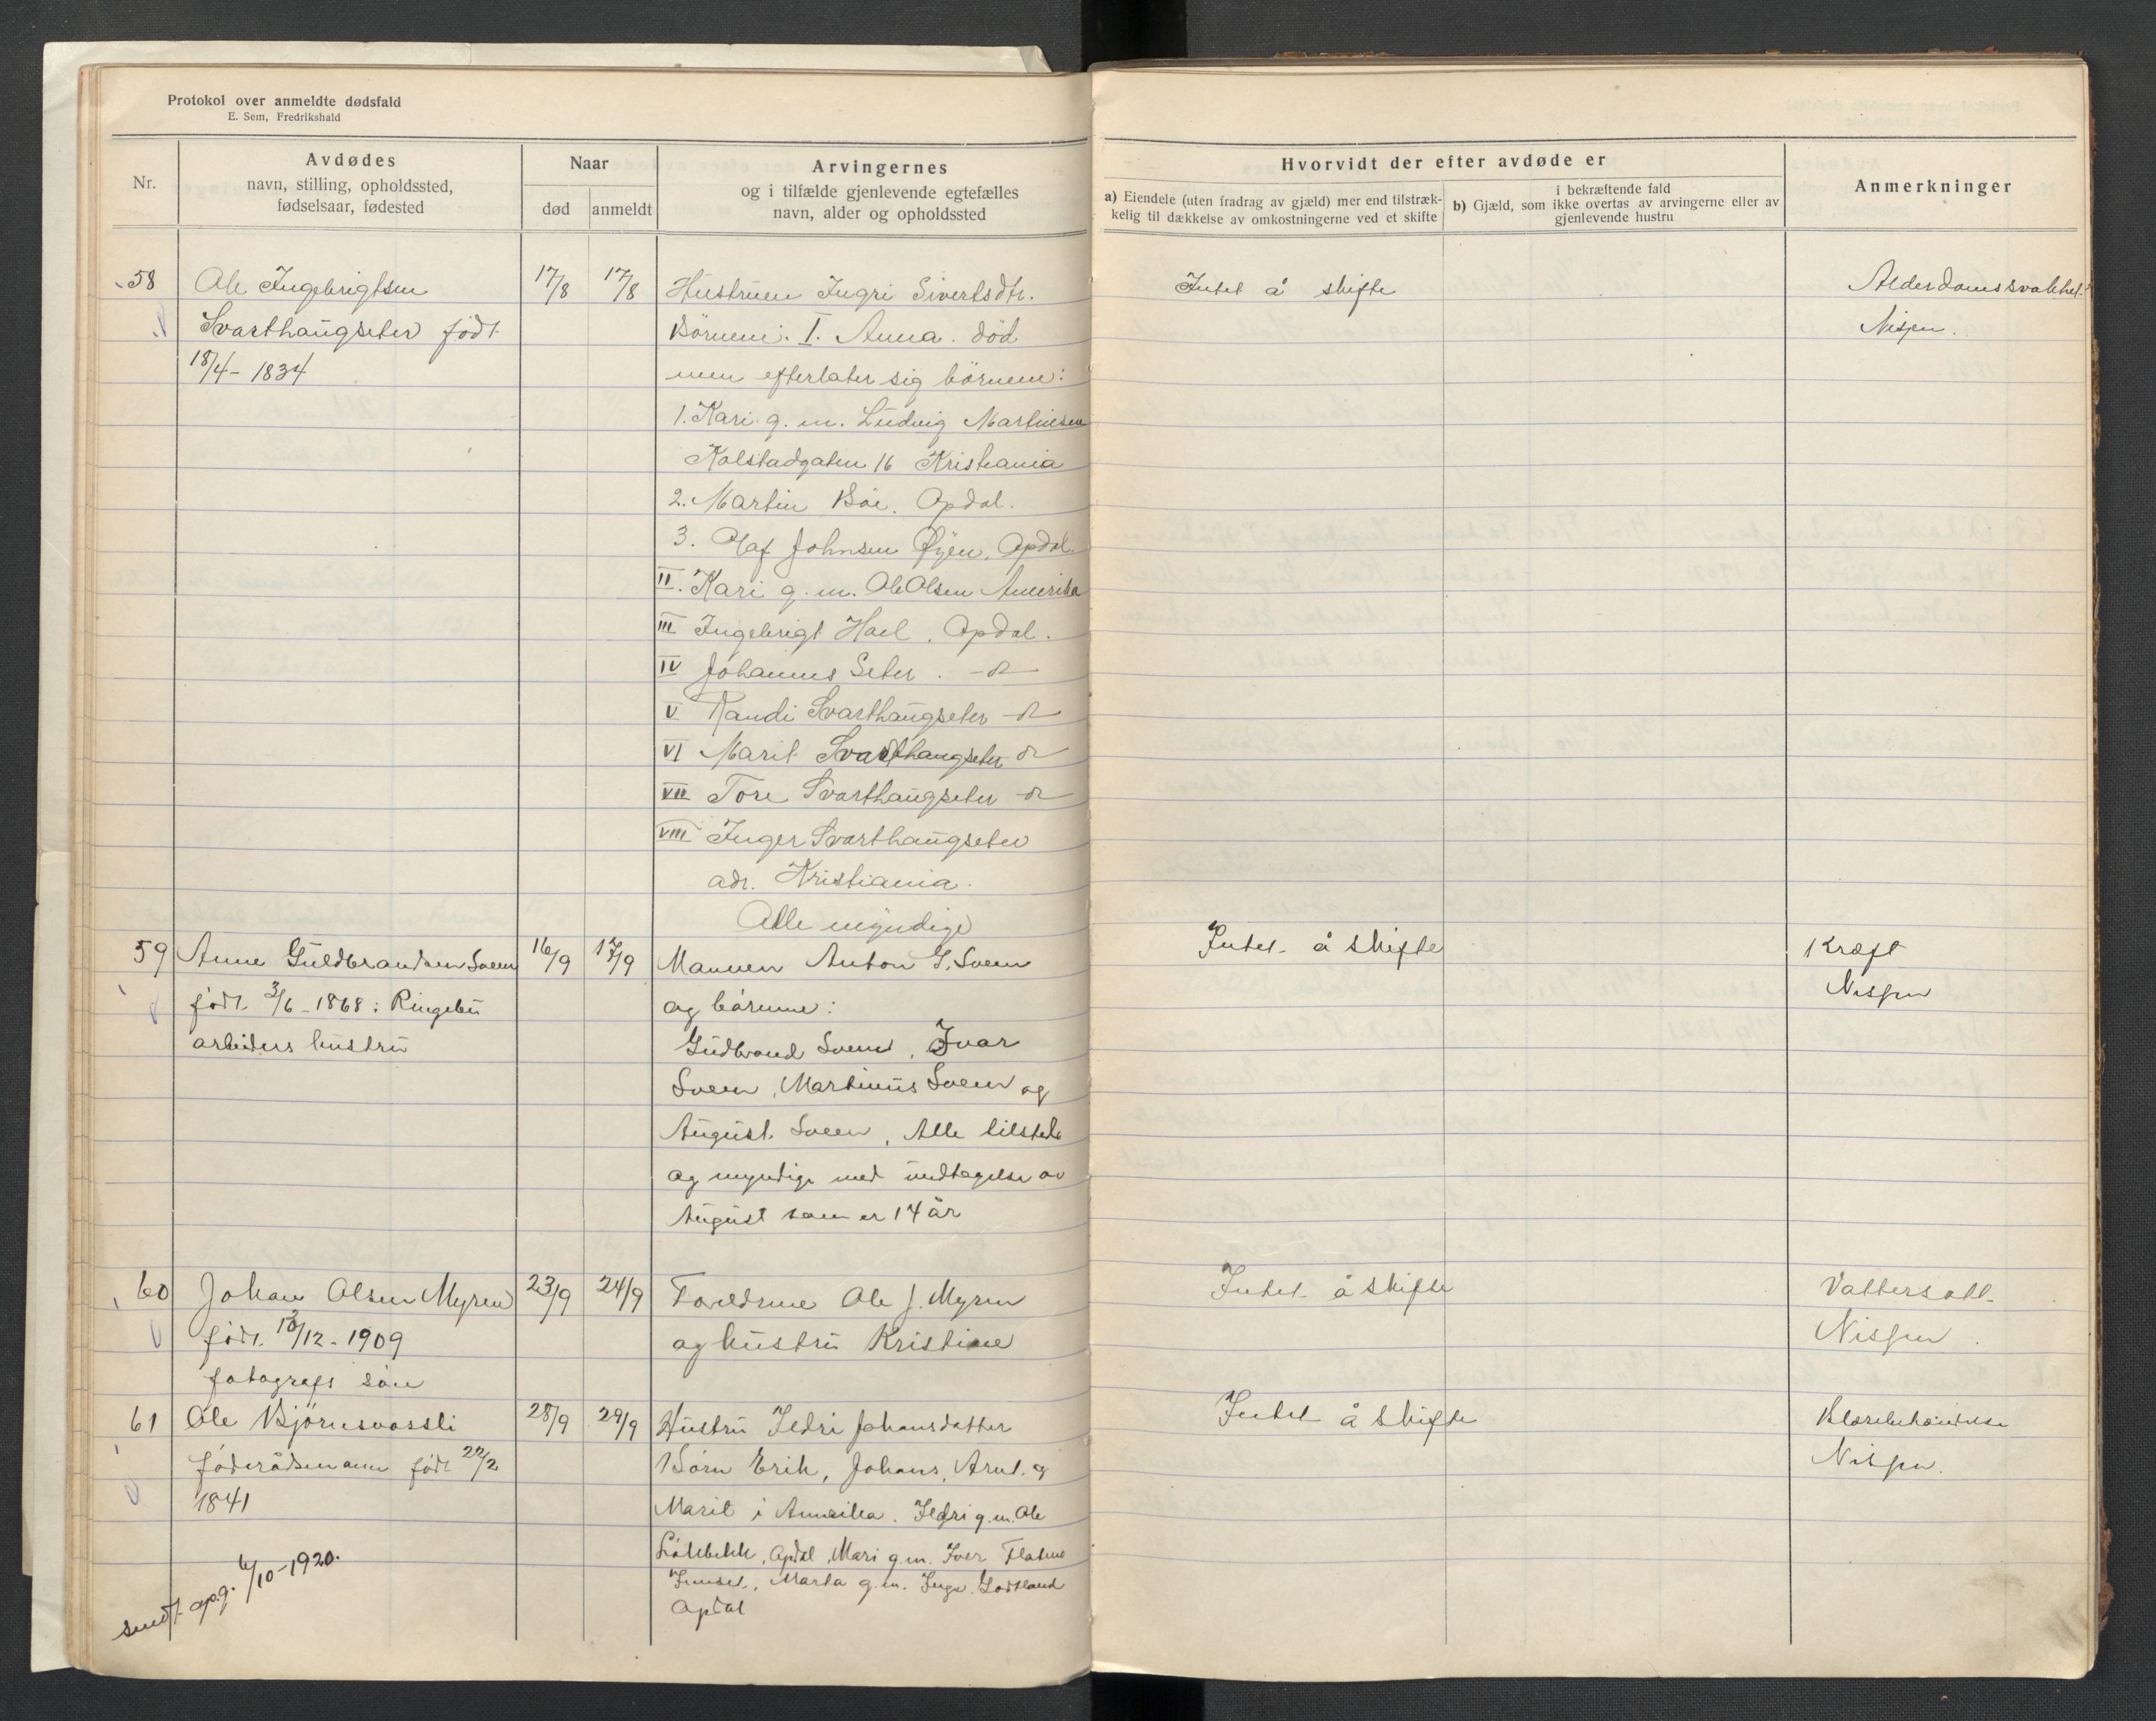 Protokol over anmeldte dødsfald
E. Sem, Fredrikshald
Nr.
Avdødes
navn, stilling, opholdssted,
fødselsaar, fødested
Naar
død
anmeldt
Arvingernes
og i tilfælde gjenlevende egtefælles
navn, alder og opholdssted
Hvorvidt der efter avdøde er
a) Eiendele (uten fradrag av gjæld) mer end tilstræk-
kelig til dækkelse av omkostningerne ved et skifte
i bekræftende fald
b) Gjæld, som ikke overtas av arvingerne eller av
gjenlevende hustru
Anmerkninger
58
Ole Ingebrigtsen
Svarthaugseter født
18/4 - 1834
17/8
17/8
Hustruen Ingri Sivertsdtr.
Börnene: I. Anna. död
men efterlater sig börnene:
1. Kari g. m. Ludvig Martinsen
Kolstadgaten 16 Kristiania
2. Martin Böe. Opdal.
3. Olaf Johnsen Øyen. Opdal.
II. Kari g. m. Ole Olsen Amerika
III Ingebrigt Hoel. Opdal.
IV Johannes Seter. -d-
V Randi Svarthaugseter -d-
VI Marit Svarthaugseter -d-
VII Tore Svarthaugseter -d-
VIII Inger Svarthaugseter
adr. Kristiania.
Alle myndige
Intet å skifte
Alderdomssvakhet
Nissen.
59
Anne Guldbrandsen Sveen
født 3/6 - 1868 i Ringebu
arbeiders hustru
16/9
17/9
Mannen Anton G. Sveen
og börnene:
Gudbrand Sveen, Ivar
Sveen, Martinus Sveen og
August Sveen, Alle tilstede
og myndige med undtagelse av
August som er 14 år
Intet å skifte
Kræft
Nissen
60
Johan Olsen Myren
født 13/12 - 1909
fotografs sön
23/9
24/9
Foreldrene Ole J. Myren
og hustru Kristine
Intet å skifte
Vattersott
Nissen.
61
Ole Björnsvassli
föderådsmann född 22/2
1841
28/9
29/9
Hustru Ildri Johansdatter
Börn Erik, Johans, Arnt. og
Marit i Amerika. Ildri g. m. Ole
Lökbekk, Opdal, Mari g. m. Iver Flatene
Innset, Marta g. m. Inge.
Opdal
Intet å skifte
Nissen.
sendt opg. 6/10-1920.